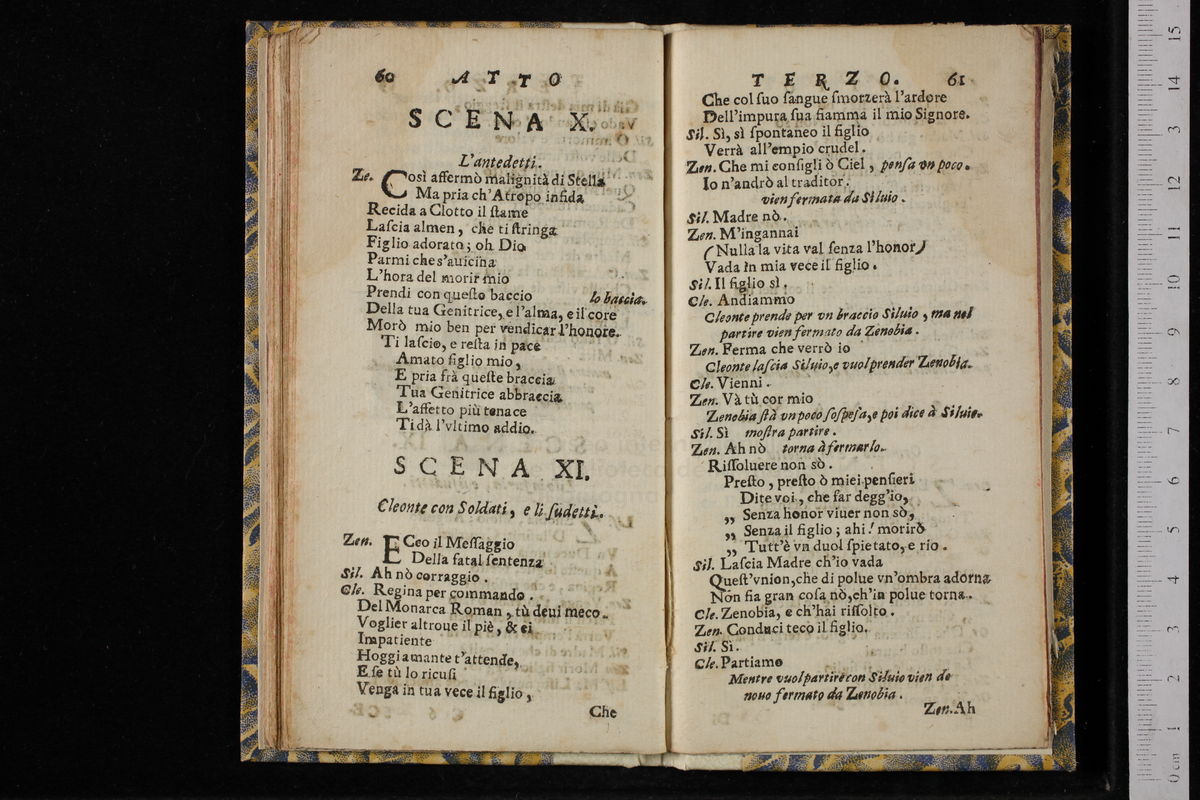 60 ATTO
SCENA X.
L'antedetti.
Ze. Così affermò malignità di Stella
Ma pria ch'Atropo infida
Recida a Clotto il ſtame
Laſcia almen, che ti ſtringa
Figlio adorato; oh Dio
Parmi che s'auicina
L'hora del morir mio
Prendi con queſto baccio lo baccia.
Della tua Genitrice, e l'alma, e il core
Morò mio ben per vendicar l'honore.
Ti laſcio, e reſta in pace
Amato figlio mio,
E pria frà queſte braccia
Tua Genitrice abbraccia
L'affetto più tenace
Ti dà l'vltimo addio.
SCENA XI.
Cleonte con Soldati, e li ſudetti.
Zen. ECco il Meſſaggio
Della fatal ſentenza
Sil. Ah nò corraggio.
Cle. Regina per commando
Del Monarca Roman, tù deui meco
Voglier altroue il piè, & ei
Impatiente
Hoggi amante t'attende,
E ſe tù lo ricuſi
Venga in tua vece il figlio,
Che
TERZO. 61
Che col ſuo ſangue ſmorzerà l'ardore
Dell'impura ſua fiamma il mio Signore.
Sil. Sì, sì ſpontaneo il figlio
Verrà all'empio crudel.
Zen. Che mi conſigli ò Ciel, penſa vn poco.
Io n'andrò al traditor.
vien fermata da Siluio.
Sil. Madre nò.
Zen. M'ingannai
(Nulla la vita val ſenza l'honor)
Vada in mia vece il figlio.
Sil. Il figlio sì.
Cle. Andiammo
Cleonte prende per vn braccio Siluio, ma nel
partire vien fermato da Zenobia.
Zen. Ferma che verrò io
Cleonte laſcia Siluio, e vuol prender Zenobia.
Cle. Vienni.
Zen. Và tù cor mio
Zenobia ſtà vn poco ſoſpeſa, e poi dice à Siluio.
Sil. Sì moſtra partire.
Zen. Ah nò torna à fermarlo.
Riſſoluere non sò.
Preſto, preſto ò miei penſieri
Dite voi, che far degg'io,
„ Senza honor viuer non sò,
„ Senza il figlio; ahi! morirò
„ Tutt'è vn duol ſpietato, e rio.
Sil. Laſcia Madre ch'io vada
Queſt'vnion, che di polue vn'ombra adorna
Non ſia gran coſa nò, ch'in polue torna.
Cle. Zenobia, e ch'hai riſſolto.
Zen. Conduci teco il figlio.
Sil. Sì.
Cle. Partiamo
Mentre vuol partire con Siluio vien de
nouo fermato da Zenobia.
Zen. Ah